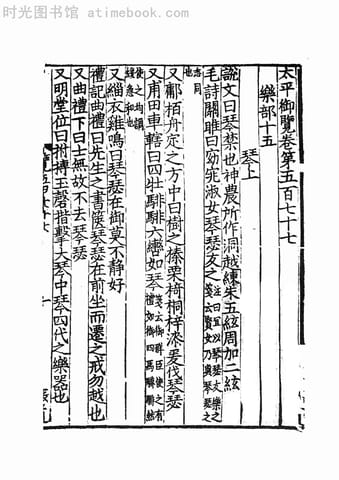 时光图书馆 - atimebook.com
太平御覽卷第五百七十七
樂部十五
琴上
說文曰琴禁也神農所作洞越練朱五絃周加二絃
毛詩關雎曰窈窕淑女琴瑟友之
志同
也
又鄘柏舟定之方中曰樹之榛栗椅桐梓漆爰伐琴瑟
又甫田車舝曰四牡騑騑六轡如琴
又緇衣雞鳴曰琴瑟在御莫不靜好
禮記曲禮曰先生之書篋琴瑟在前坐而遷之戒勿越也
又曲禮下曰士無故不去琴瑟
又明堂位曰拊搏玉磬揩擊大琴中琴四代之樂器也